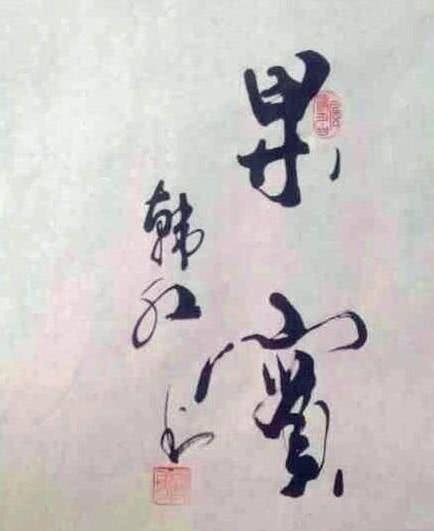 果實
韩红书